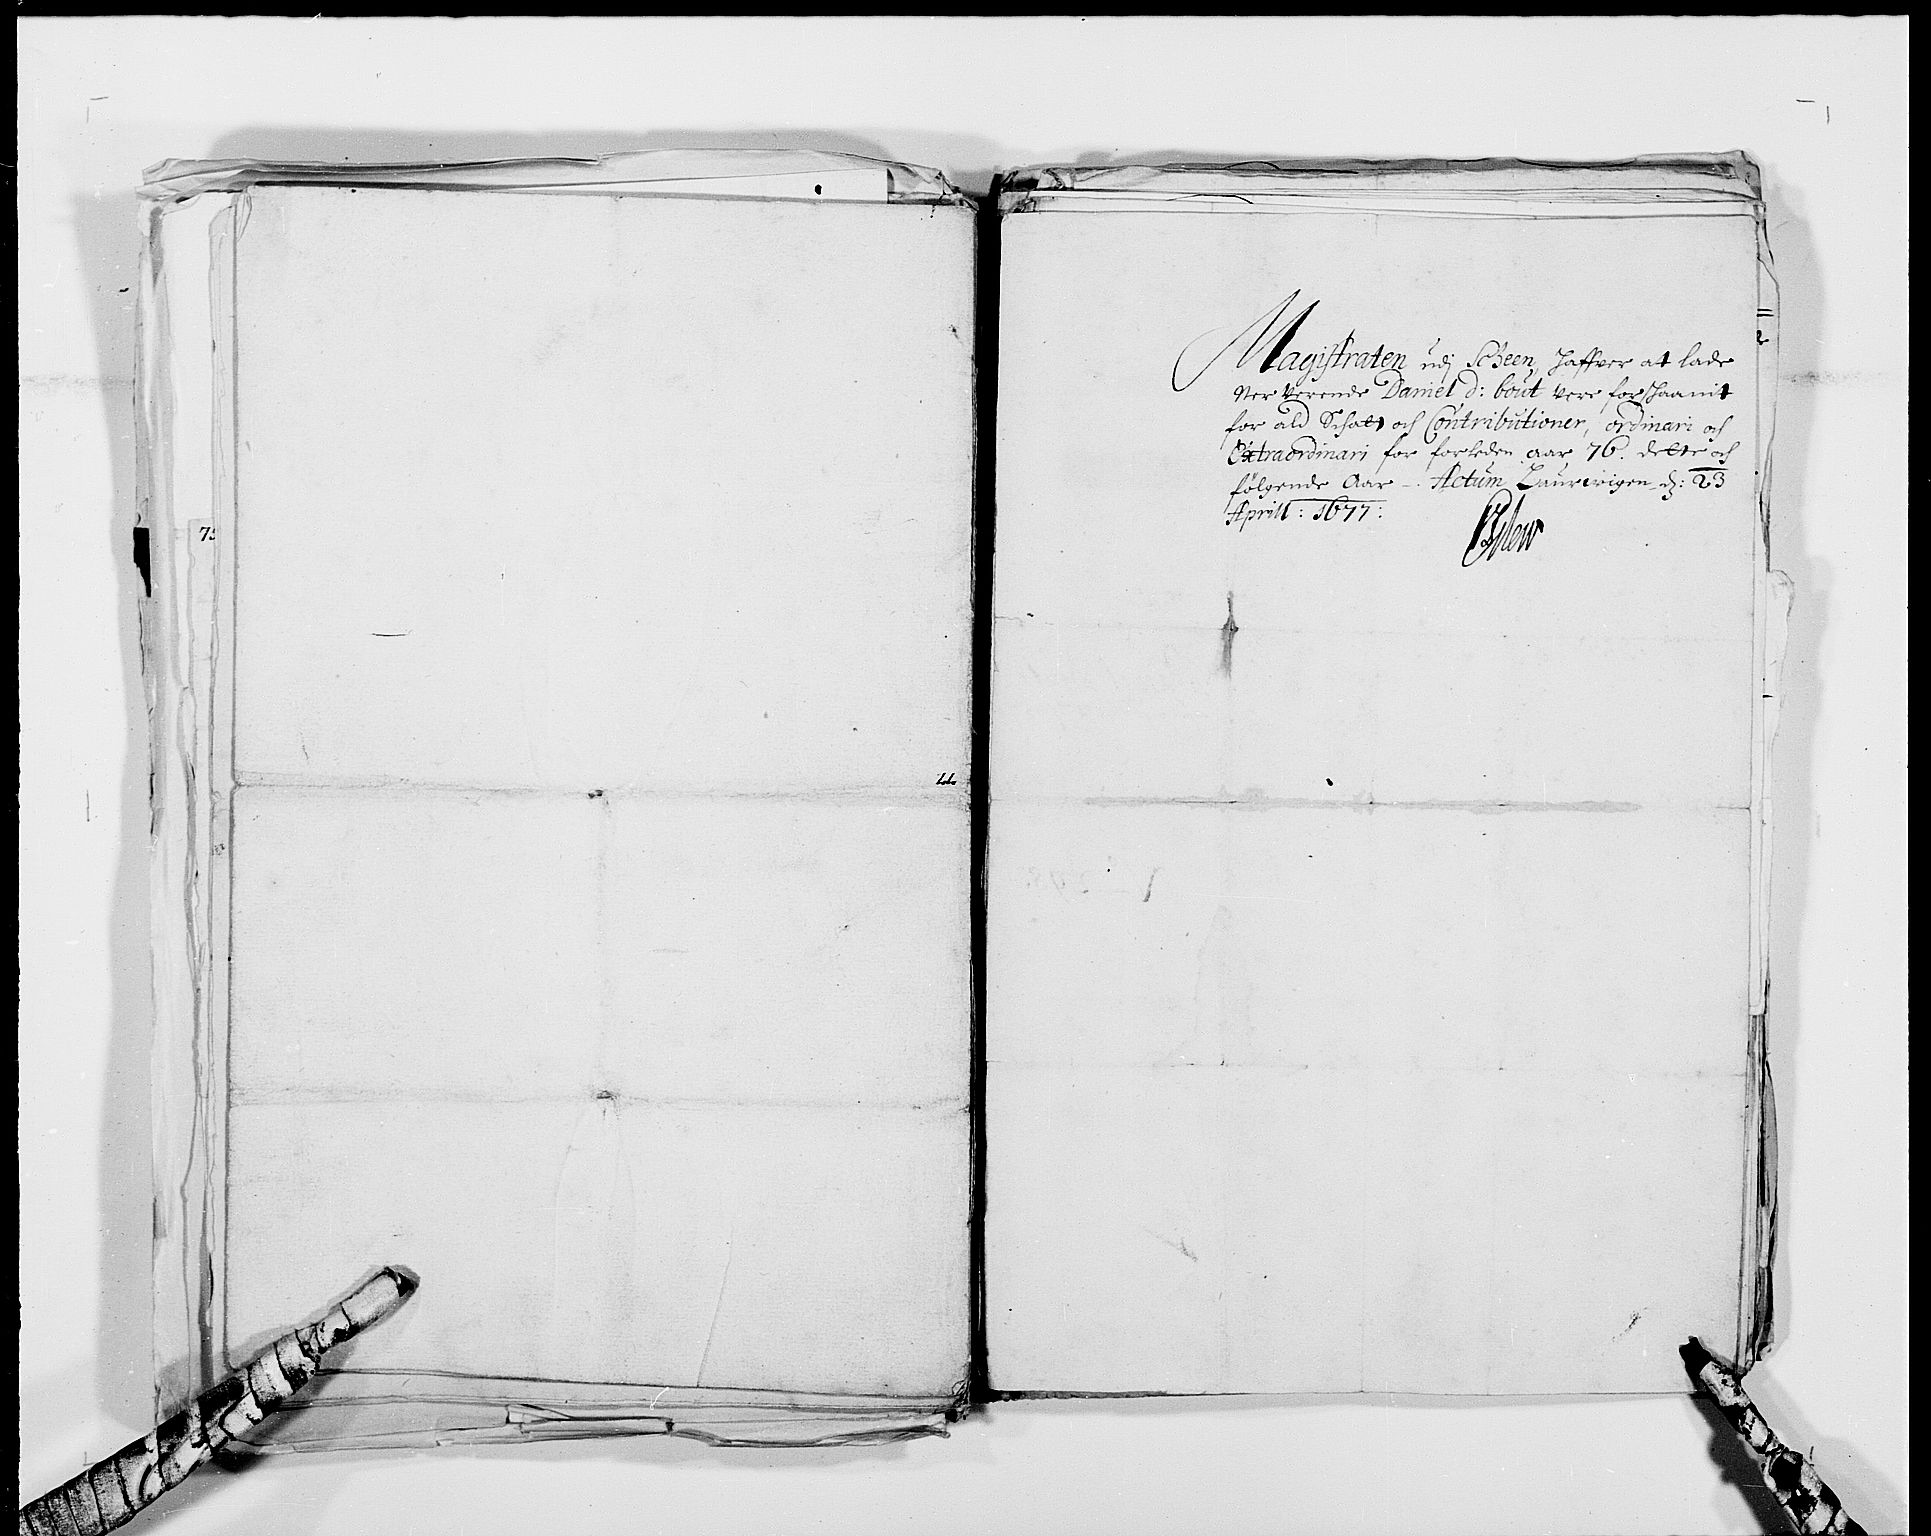 75
Magistraten udj Scheen, haffver at lade
Nerverende Daniel d: bout vere forschaanit
for ald Schatt och Contributioner, ordinari och
Extraordinari for forleden aar 76. dette och
følgende Aar –. Actum Laurwigen d: 23
Aprill: 1677: